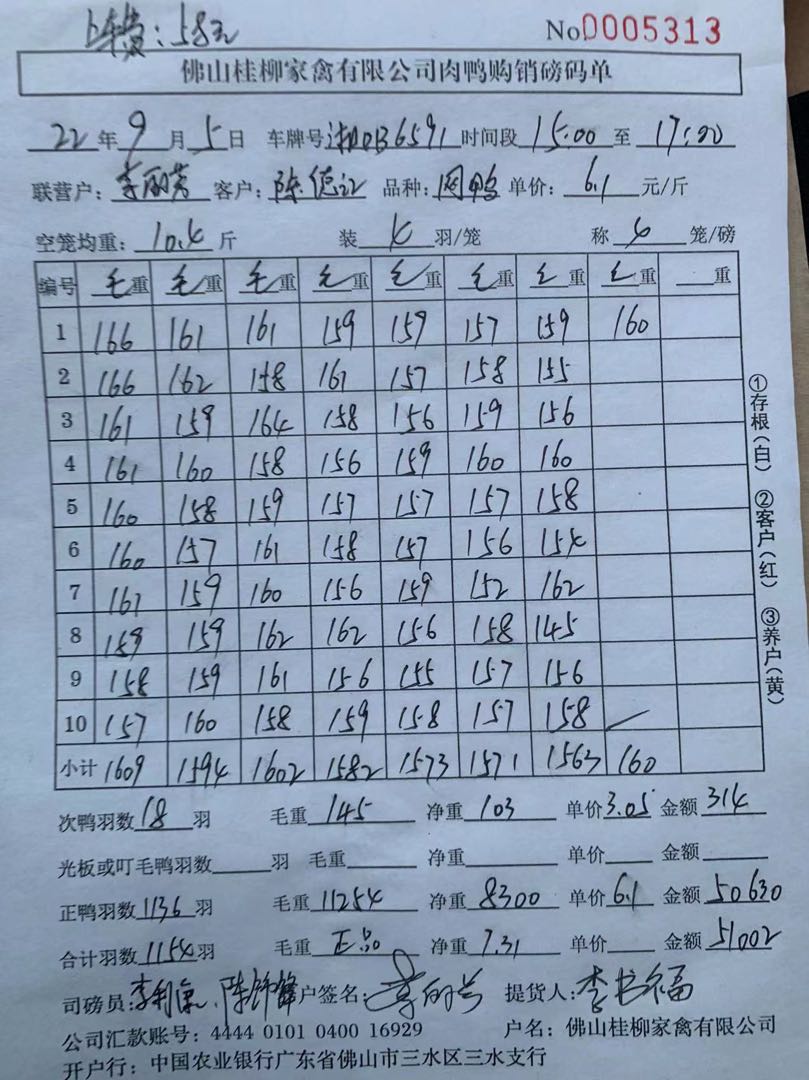 上车费：58元
No 0005313
佛山桂柳家禽有限公司肉鸭购销磅码单
22年9月5日 车牌号湘DB6591时间段15:00至17:00
联营户：李丽芳 客户：陈德江 品种：网鸭 单价：6.1元/斤
空笼均重：10.4斤 装4羽/笼 称4笼/磅
编号 毛重 毛重 毛重 毛重 毛重 毛重 毛重 毛重 重
1 166 161 161 159 159 157 159 160
2 166 162 158 161 157 158 155
3 161 159 164 158 156 159 156
4 161 160 158 156 159 160 160
5 160 158 159 157 157 157 158
6 160 157 161 158 157 156 154
7 161 159 160 156 159 152 162
8 159 159 162 162 156 158 145
9 158 159 161 156 155 157 156
10 157 160 158 159 158 157 158
小计 1609 1594 1602 1582 1573 1571 1563 160
①存根（白） ②客户（红） ③养户（黄）
次鸭羽数18羽 毛重145 净重103 单价3.05 金额314
光板或叮毛鸭羽数 羽 毛重 净重 单价 金额
正鸭羽数1136羽 毛重11254 净重8300 单价6.1 金额50630
合计羽数1154羽 毛重正品 净重7.31 单价 金额51002
司磅员： 户签名：李丽芳 提货人：李书福
公司汇款账号：4444 0101 0400 16929 户名：佛山桂柳家禽有限公司
开户行：中国农业银行广东省佛山市三水区三水支行